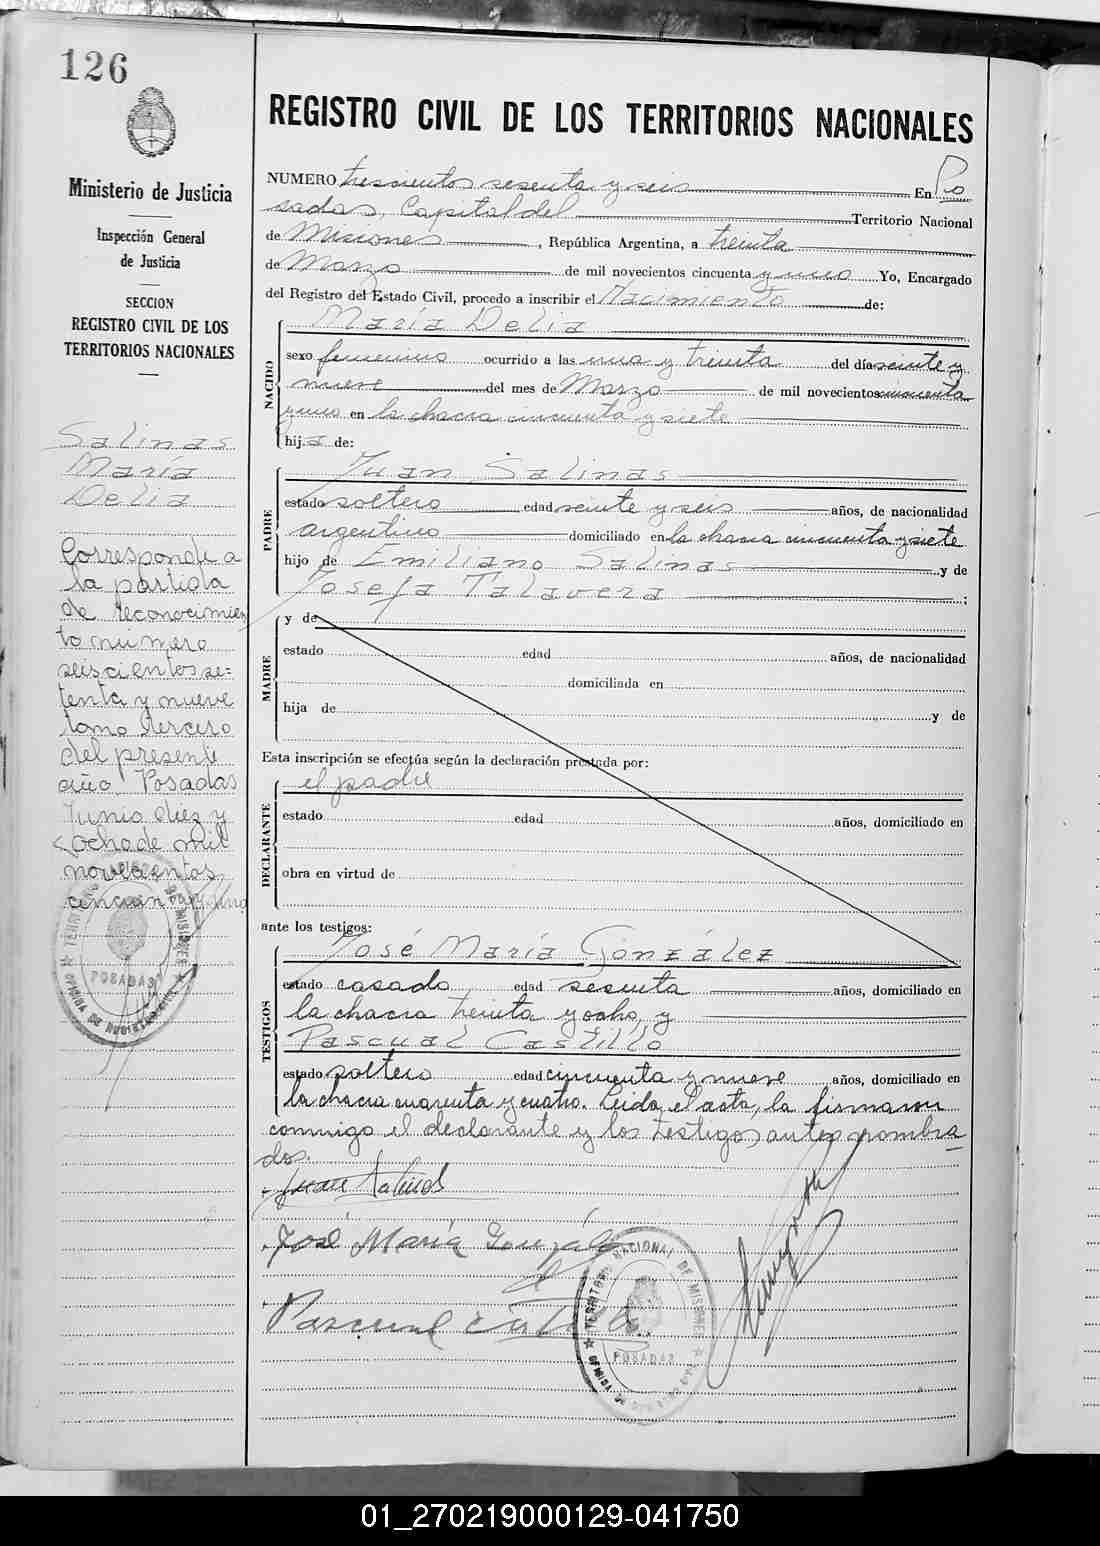 126
Ministerio de Justicia
Inspección General
de Justicia
SECCION
REGISTRO CIVIL DE LOS
TERRITORIOS NACIONALES
Salinas
María
Delia
Corresponde a
la partida
de reconocimien
to número
seiscientos se=
tenta y nueve
tomo tercero
del presente
año. Posadas
Junio diez y
ocho de mil
novecientos
cincuenta y uno
REGISTRO CIVIL DE LOS TERRITORIOS NACIONALES
NUMERO trescientos sesenta y seis En Po
sadas, Capital del Territorio Nacional
de Misiones, República Argentina, a treinta
de Marzo de mil novecientos cincuenta y uno Yo, Encargado
del Registro del Estado Civil, procedo a inscribir el Nacimiento de:
NACIDO
María Delia
sexo femenino ocurrido a las una y treinta del día veinte y
nueve del mes de Marzo de mil novecientos cincuenta
y uno en la chacra cincuenta y siete
hija de:
PADRE
Juan Salinas
estado soltero edad veinte y seis años, de nacionalidad
argentino domiciliado en la chacra cincuenta y siete
hijo de Emiliano Salinas y de
Josefa Talavera ;
MADRE
y de
estado edad años, de nacionalidad
domiciliada en
hija de y de
Esta inscripción se efectúa según la declaración prestada por:
DECLARANTE
el padre
estado edad años, domiciliado en
obra en virtud de
ante los testigos:
TESTIGOS
José María González
estado casado edad sesenta años, domiciliado en
la chacra treinta y ocho, y
Pascual Castillo
estado soltero edad cincuenta y nueve años, domiciliado en
la chacra cuarenta y cuatro. Leida el acta, la firmaron
conmigo el declarante y los testigos antes nombra
dos.
Juan Salinas
José María González
Pascual Castillo
TERRITORIO NACIONAL DE MISIONES
POSADAS
01_270219000129-041750